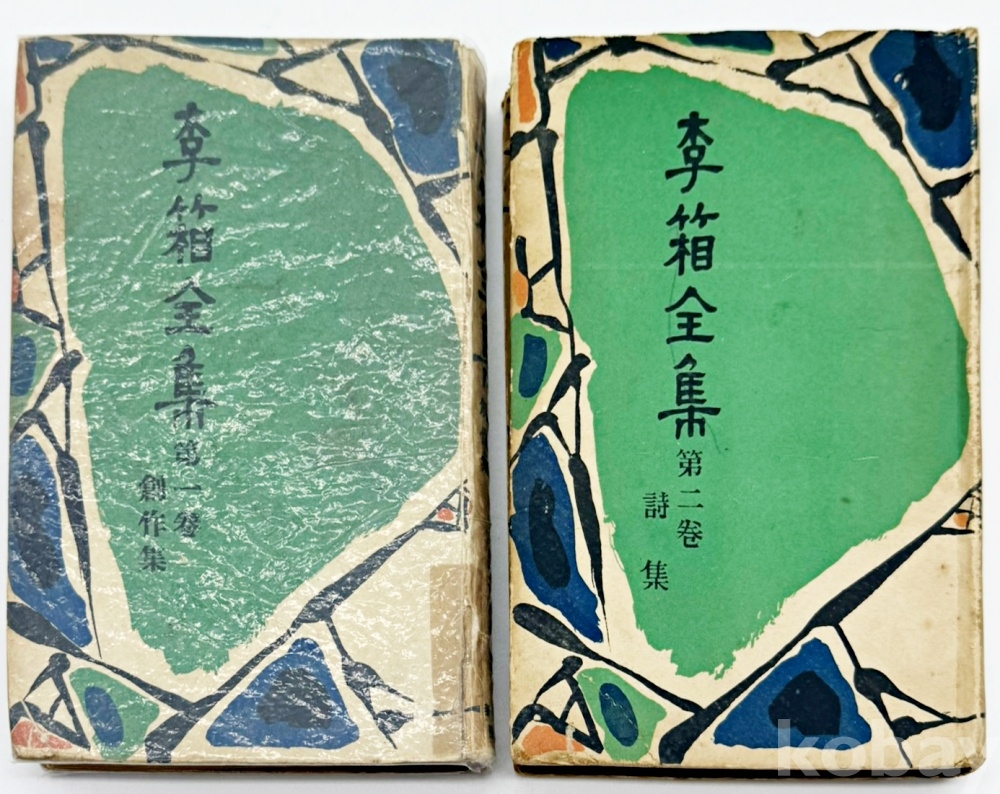 李箱全集
第一卷
創作集
李箱全集
第二卷
詩集
kobay